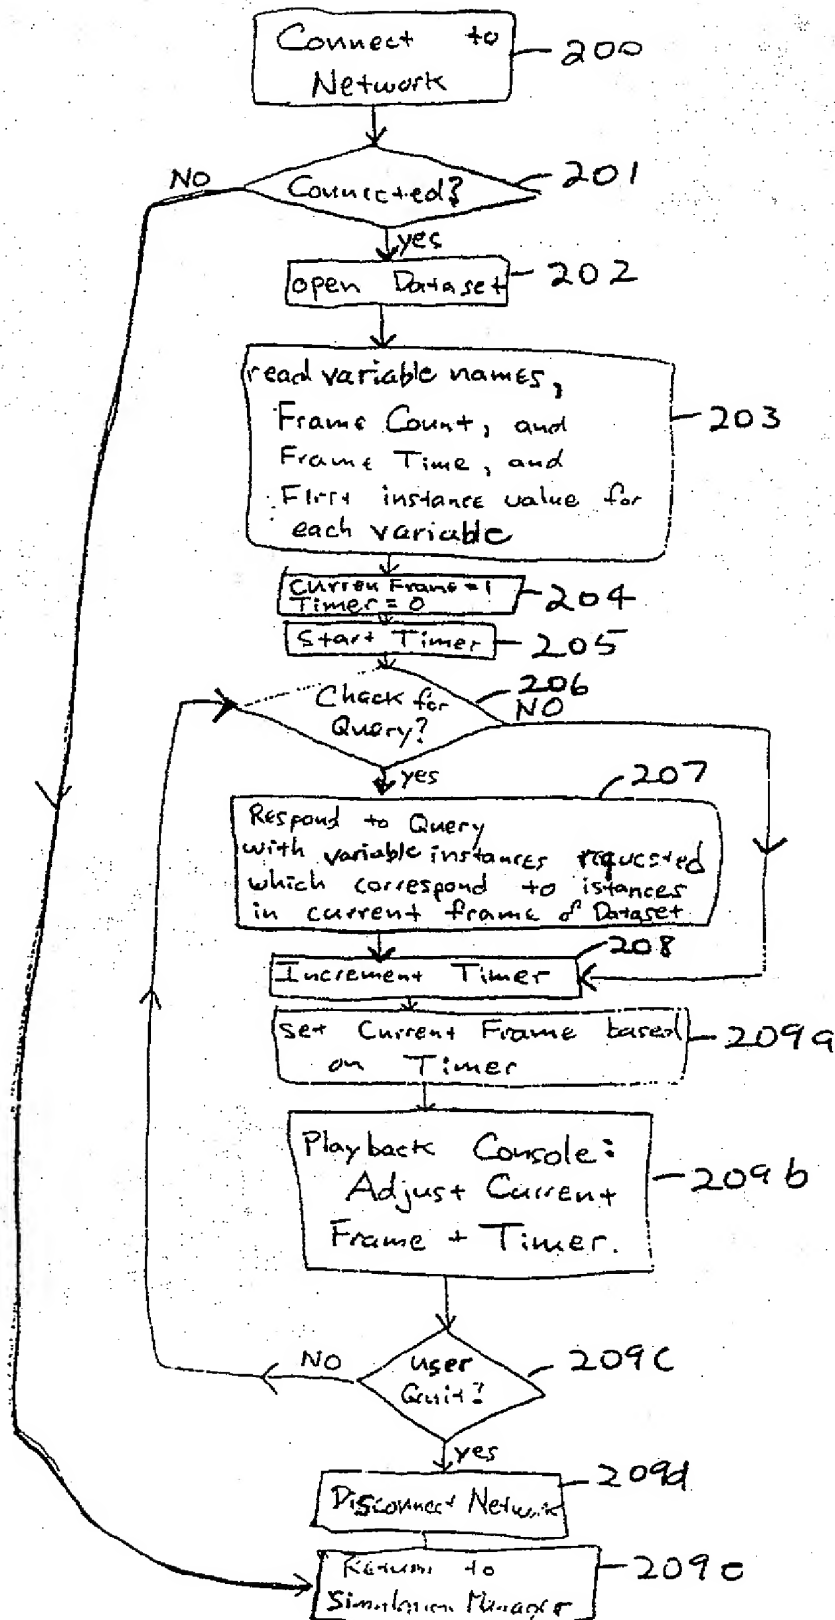 Connect to
Network
200
Connected?
201
NO
yes
open Dataset
202
read variable names,
Frame Count, and
Frame Time, and
First instance value for
each variable
203
Curren Frame = 1
Timer = 0
204
Start Timer
205
Check for
Query?
206
NO
yes
207
Respond to Query
with variable instances requested
which correspond to istances
in current frame of Dataset
208
Increment Timer
set Current Frame based
on Timer
209a
Playback Console:
Adjust Current
Frame + Timer.
209b
user
Quit?
209c
NO
yes
209d
Disconnect Network
Return to
Simulation Manager
209e